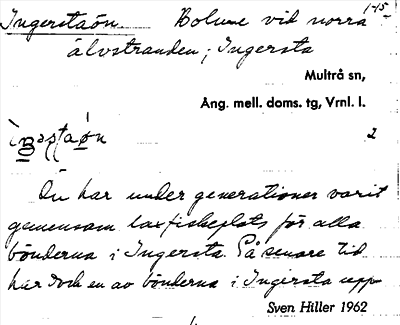 Ingerstaön. Holme vid norra 1-15
älvstranden; Ingersta
Multrå sn,
Ång. mell. doms. tg, Vrnl. l.
2
Ön har under generationer varit
gemensam laxfiskeplats för alla
bönderna i Ingersta. På senare tid
har dock en av bönderna i Ingersta upp
Sven Hiller 1962